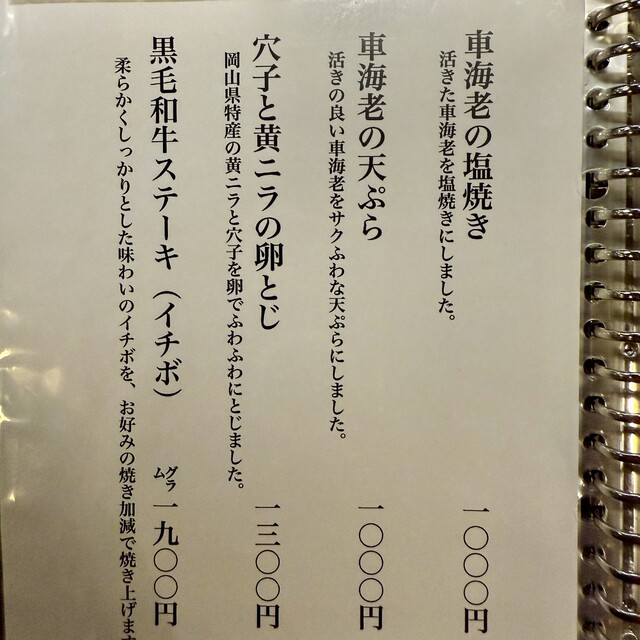 車海老の塩焼き 一〇〇〇円
活きた車海老を塩焼きにしました。
車海老の天ぷら 一〇〇〇円
活きの良い車海老をサクふわな天ぷらにしました。
穴子と黄ニラの卵とじ 一三〇〇円
岡山県特産の黄ニラと穴子を卵でふわふわにとじました。
黒毛和牛ステーキ（イチボ） グラム 一九〇〇円
柔らかくしっかりとした味わいのイチボを、お好みの焼き加減で焼き上げます